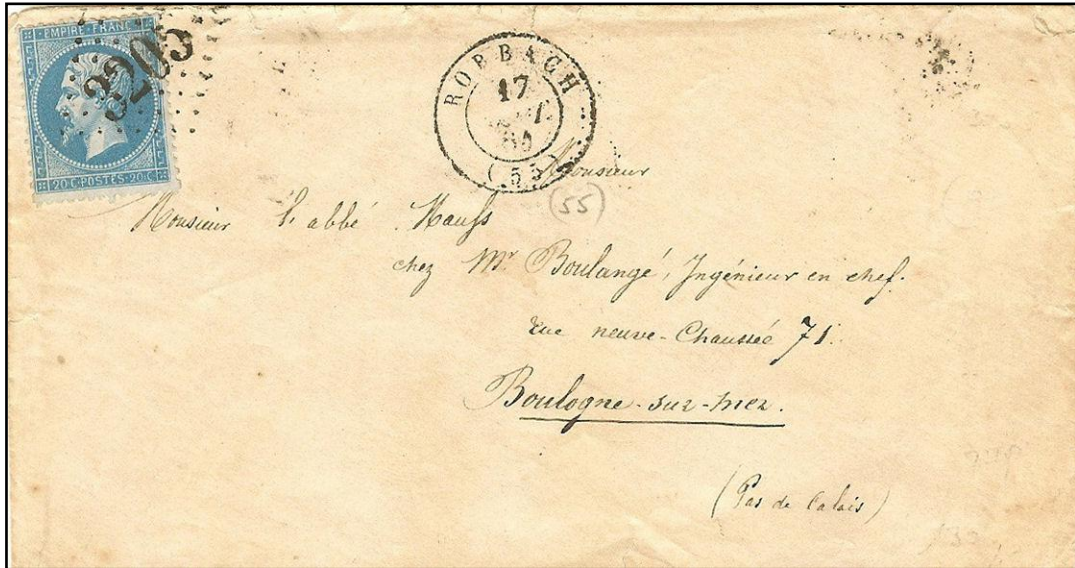 EMPIRE FRANC
3205
20 C. POSTES 20 C.
ROHRBACH
17
(55)
Monsieur
(55)
Monsieur l'abbé
chez Mr Boulangé, Ingénieur en chef.
Rue neuve-Chaussée 71.
Boulogne-sur-mer.
(Pas de Calais)